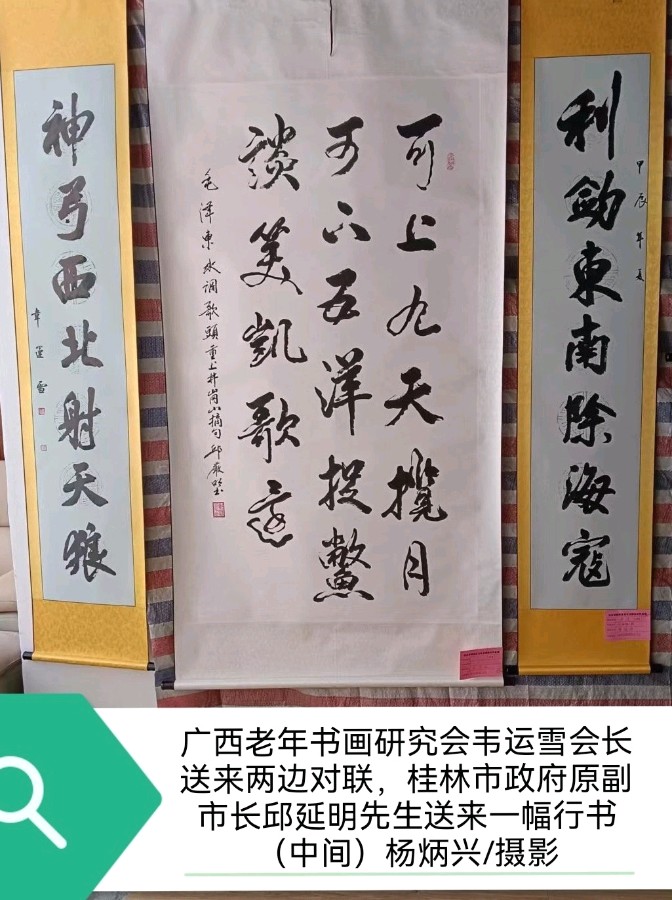 利劍東南除海寇
甲辰年夏
可上九天攬月
可下五洋捉鱉
談笑凱歌還
毛澤東水調歌頭重上井崗山摘句
神弓西北射天狼
韋運雪
广西老年书画研究会韦运雪会长
送来两边对联，桂林市政府原副
市长邱延明先生送来一幅行书
（中间）杨炳兴/摄影